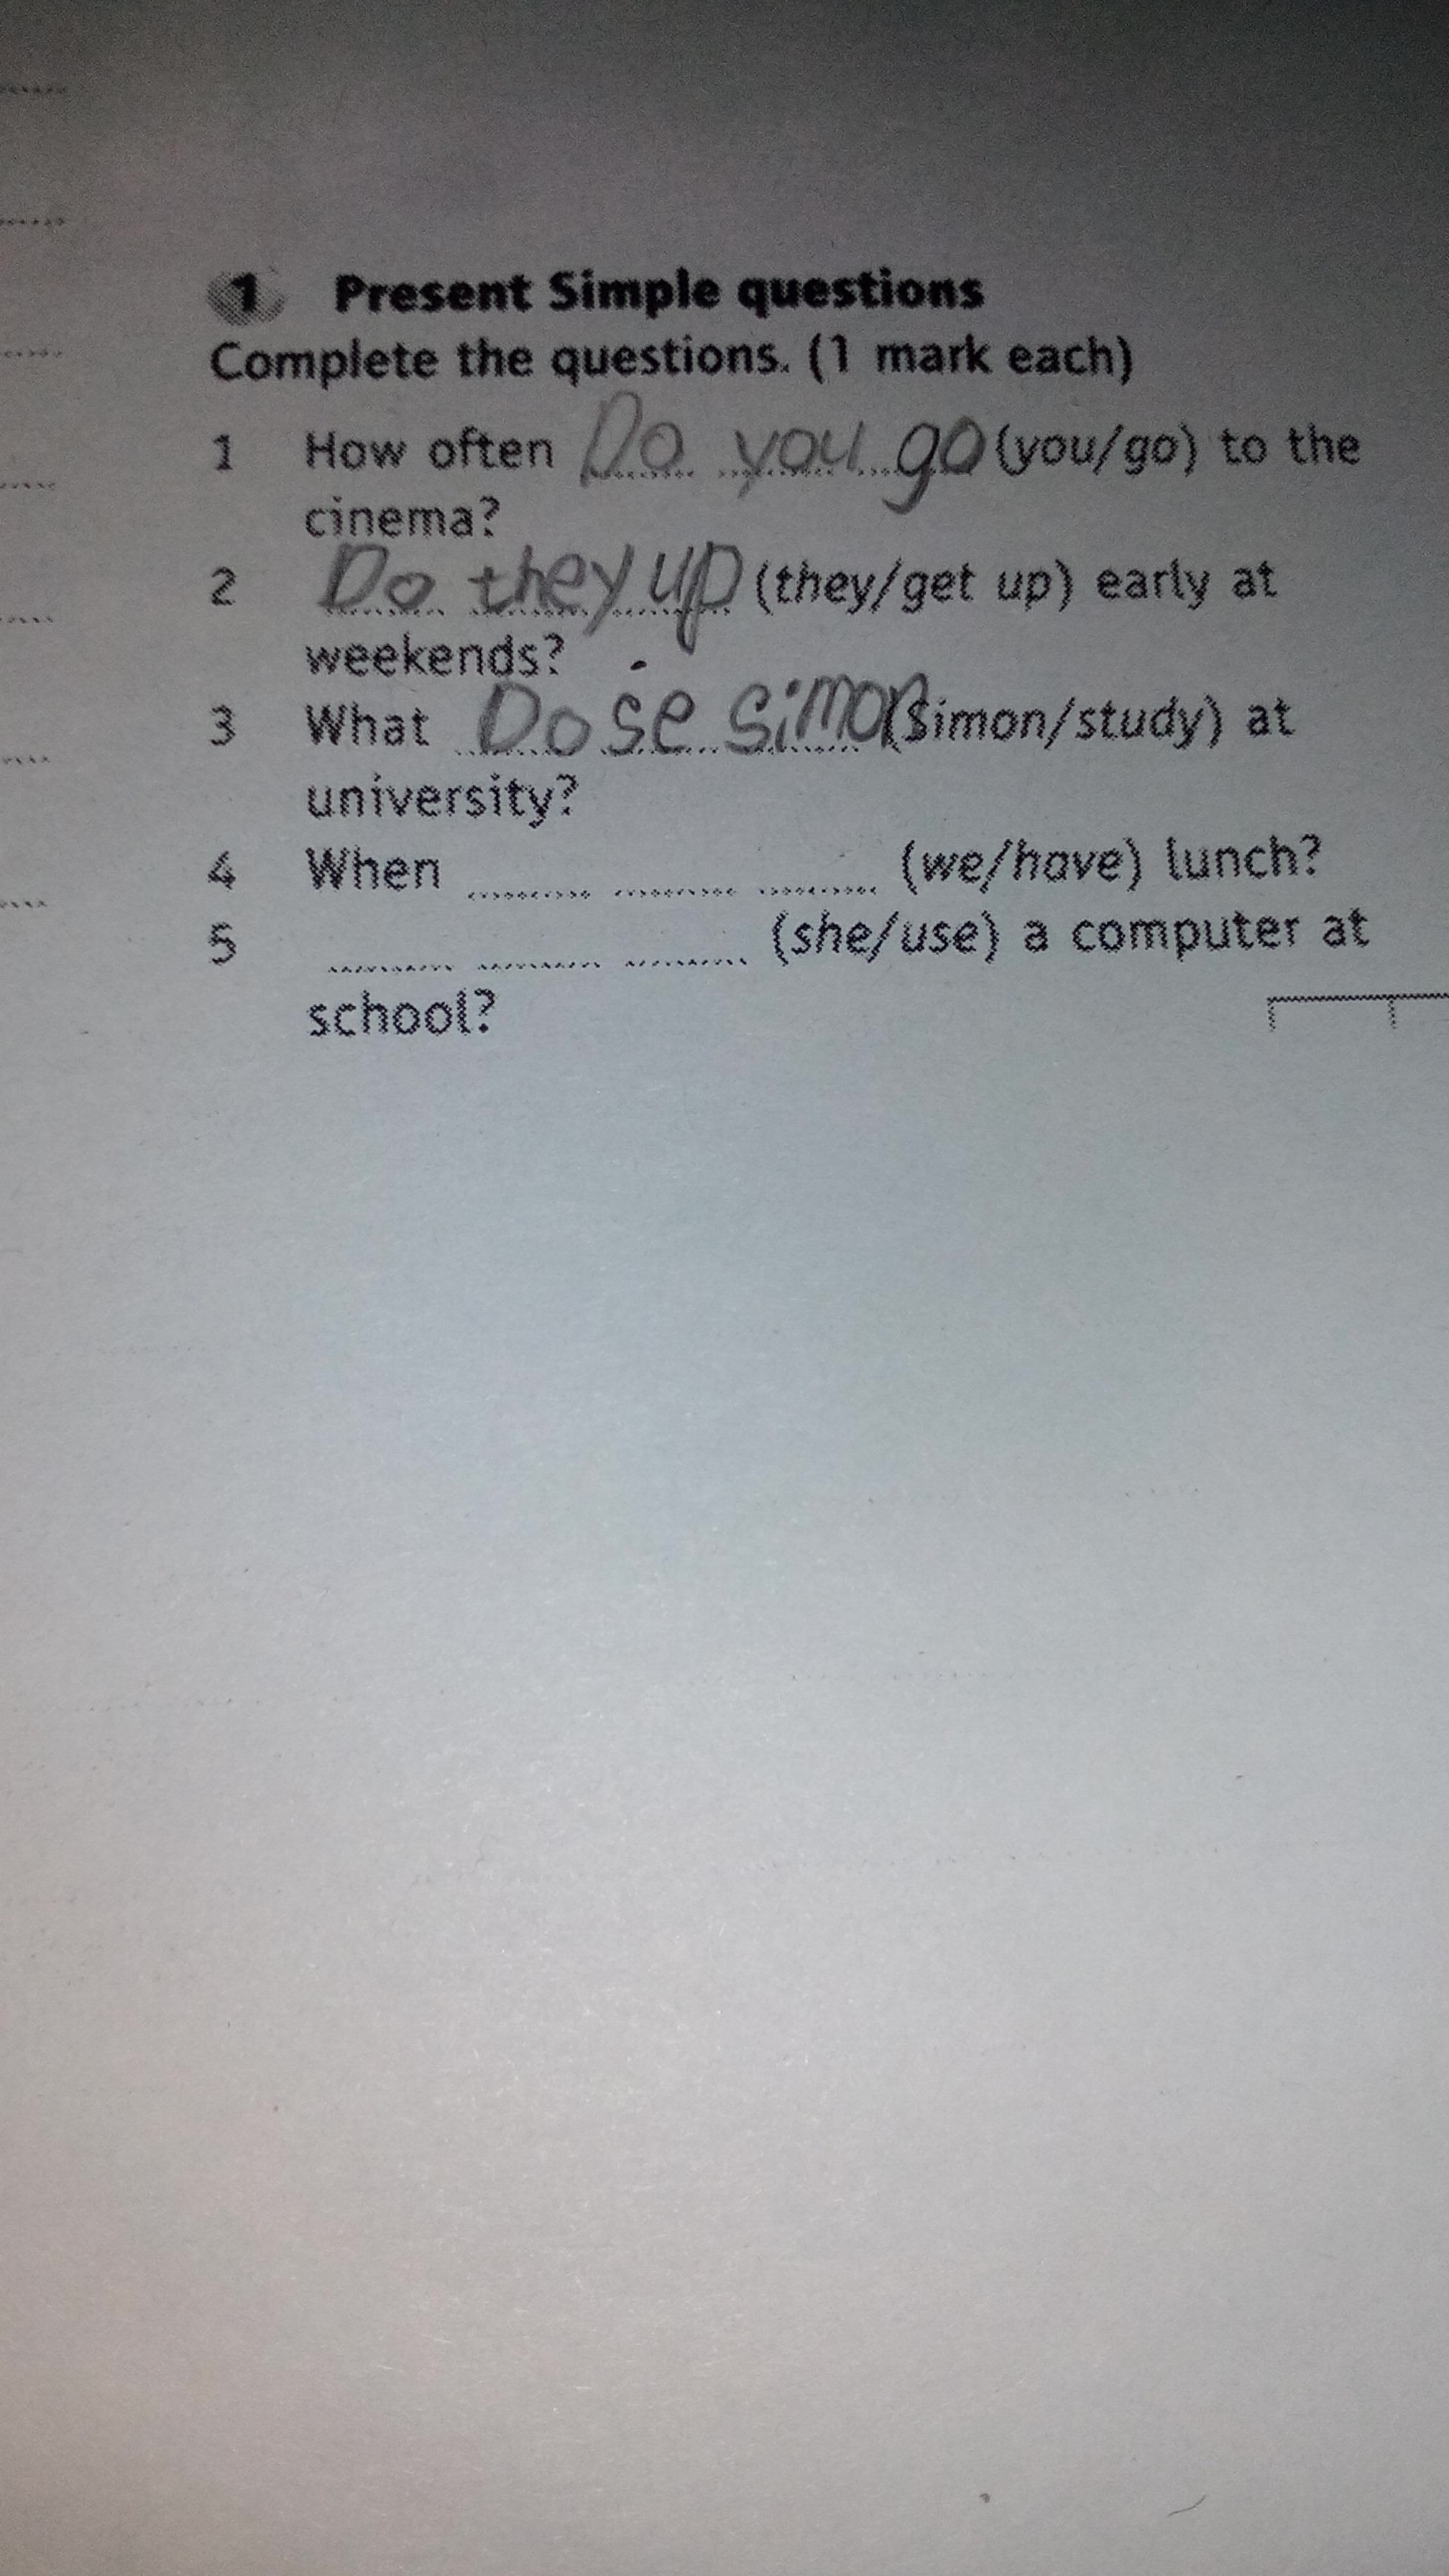 1 Present Simple questions
Complete the questions. (1 mark each)
1 How often Do you go (you/go) to the
cinema?
2 Do they up (they/get up) early at
weekends?
3 What Dose simon (Simon/study) at
university?
4 When ......... ......... ......... (we/have) lunch?
5 ......... ......... ......... (she/use) a computer at
school?